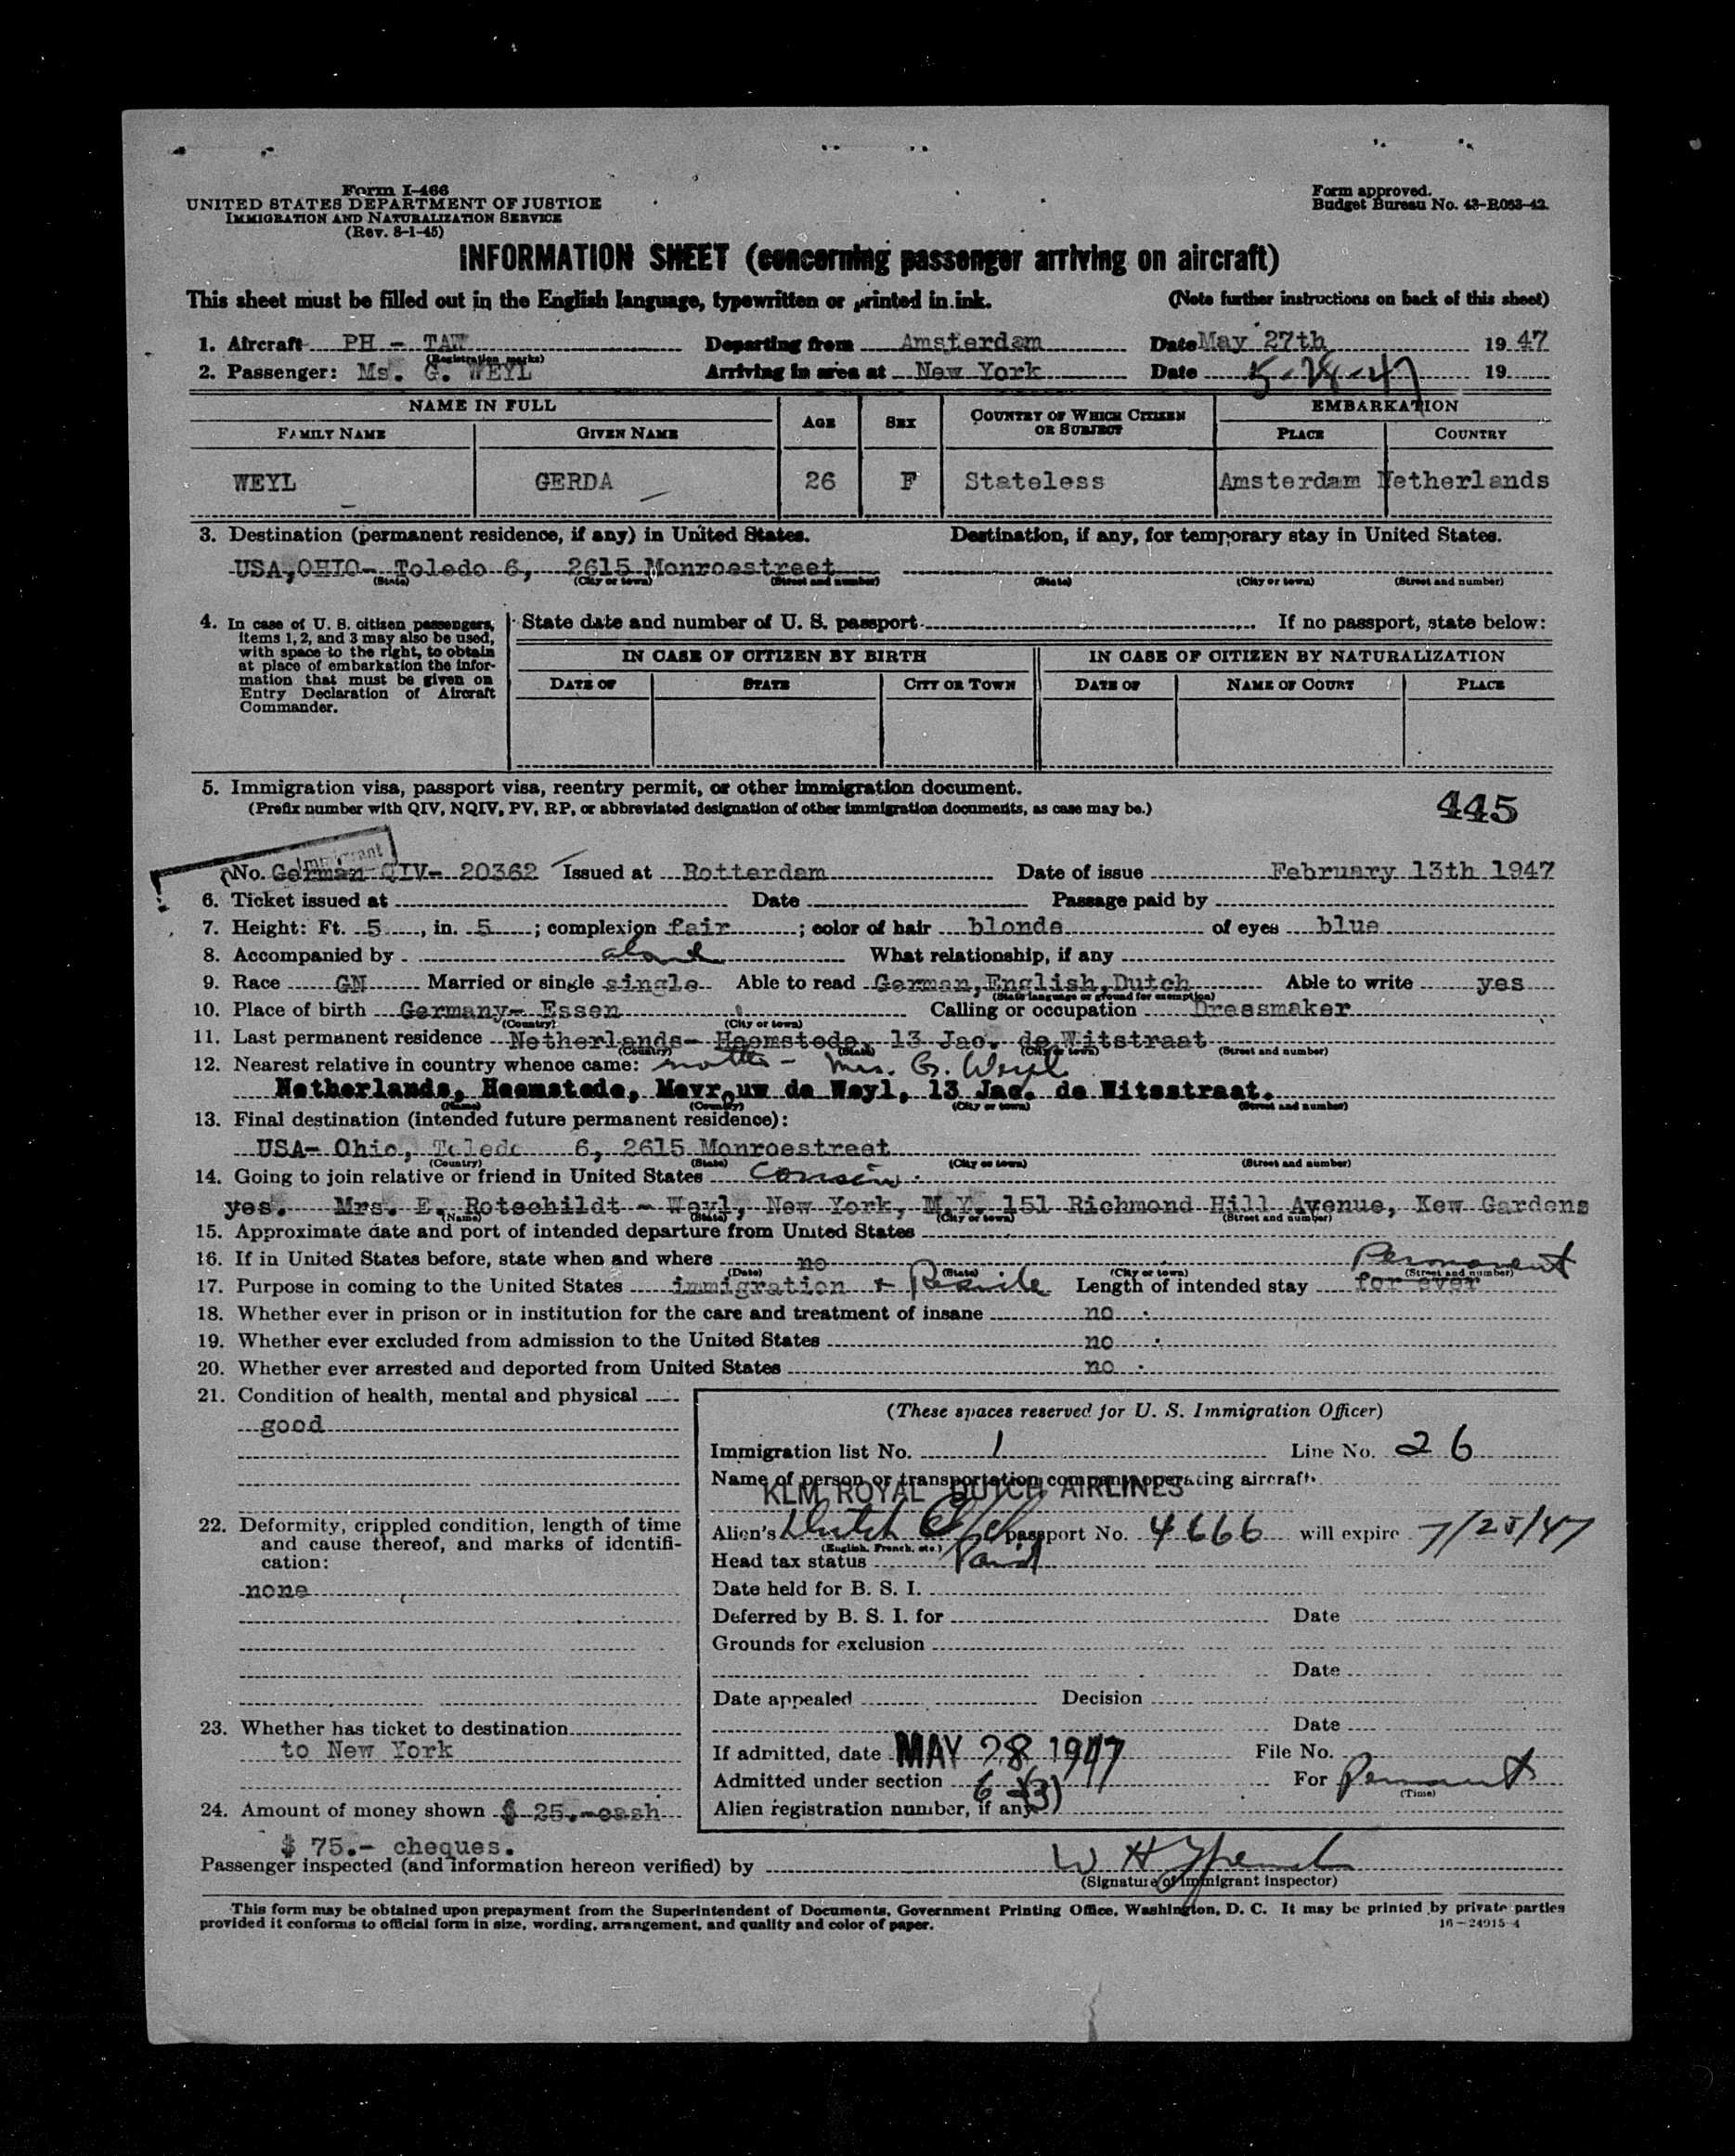 Form I-466
UNITED STATES DEPARTMENT OF JUSTICE
IMMIGRATION AND NATURALIZATION SERVICE
(Rev. 8-1-45)
Form approved.
Budget Bureau No. 43-R063-42.
INFORMATION SHEET (concerning passenger arriving on aircraft)
This sheet must be filled out in the English language, typewritten or printed in ink. (Note further instructions on back of this sheet)
1. Aircraft PH - TAW Departing from Amsterdam Date May 27th 1947
(Registration marks)
2. Passenger: Ms. G. WEYL Arriving in area at New York Date 5-28-47 19
NAME IN FULL AGE SEX COUNTRY OF WHICH CITIZEN OR SUBJECT EMBARKATION
FAMILY NAME GIVEN NAME PLACE COUNTRY
WEYL GERDA 26 F Stateless Amsterdam Netherlands
3. Destination (permanent residence, if any) in United States. Destination, if any, for temporary stay in United States.
USA, OHIO- Toledo 6, 2615 Monroestreet
(State) (City or town) (Street and number) (State) (City or town) (Street and number)
4. In case of U. S. citizen passengers, items 1, 2, and 3 may also be used, with space to the right, to obtain at place of embarkation the information that must be given on Entry Declaration of Aircraft Commander.
State date and number of U. S. passport If no passport, state below:
IN CASE OF CITIZEN BY BIRTH IN CASE OF CITIZEN BY NATURALIZATION
DATE OF STATE CITY OR TOWN DATE OF NAME OF COURT PLACE
5. Immigration visa, passport visa, reentry permit, or other immigration document.
(Prefix number with QIV, NQIV, PV, RP, or abbreviated designation of other immigration documents, as case may be.)
445
Immigrant
No. German QIV- 20362 Issued at Rotterdam Date of issue February 13th 1947
6. Ticket issued at Date Passage paid by
7. Height: Ft. 5, in. 5; complexion fair; color of hair blonde of eyes blue
8. Accompanied by alone What relationship, if any
9. Race GN Married or single single Able to read German, English, Dutch Able to write yes
(State language or ground for exemption)
10. Place of birth Germany- Essen Calling or occupation Dressmaker
(Country) (City or town)
11. Last permanent residence Netherlands- Heemstede, 13 Jac. de Witstraat
(Country) (State) (City or town) (Street and number)
12. Nearest relative in country whence came: mother - Mrs. G. Weyl
Netherlands, Heemstede, Mevrouw de Weyl, 13 Jac. de Witsstraat.
(Name) (Country) (City or town) (Street and number)
13. Final destination (intended future permanent residence):
USA- Ohio, Toledo 6, 2615 Monroestreet
(Country) (State) (City or town) (Street and number)
14. Going to join relative or friend in United States cousin.
yes. Mrs. E. Rotschildt - Weyl, New York, N.Y. 151 Richmond Hill Avenue, Kew Gardens
(Name) (State) (City or town) (Street and number)
15. Approximate date and port of intended departure from United States
16. If in United States before, state when and where no
(Date) (State) (City or town) (Street and number)
Permanent
17. Purpose in coming to the United States immigration + Reside Length of intended stay for ever
18. Whether ever in prison or in institution for the care and treatment of insane no
19. Whether ever excluded from admission to the United States no
20. Whether ever arrested and deported from United States no
21. Condition of health, mental and physical
good
22. Deformity, crippled condition, length of time and cause thereof, and marks of identification:
none
23. Whether has ticket to destination
to New York
24. Amount of money shown $ 25.-cash
$ 75.- cheques.
(These spaces reserved for U. S. Immigration Officer)
Immigration list No. 1 Line No. 26
Name of person or transportation company operating aircraft.
KLM ROYAL DUTCH AIRLINES
Alien's Dutch passport No. 4666 will expire 7/25/47
(English, French, etc.)
Head tax status Paid
Date held for B. S. I.
Deferred by B. S. I. for Date
Grounds for exclusion
Date
Date appealed Decision
Date
If admitted, date MAY 28 1947 File No.
Admitted under section 6 (3) For Permanent
(Time)
Alien registration number, if any
Passenger inspected (and information hereon verified) by
(Signature of immigrant inspector)
This form may be obtained upon prepayment from the Superintendent of Documents, Government Printing Office, Washington, D. C. It may be printed by private parties
provided it conforms to official form in size, wording, arrangement, and quality and color of paper. 16-24915-4